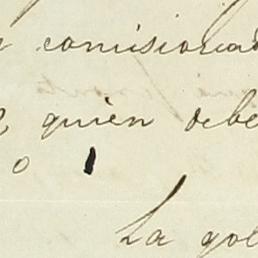 comisionad
quien debe
o
La gol